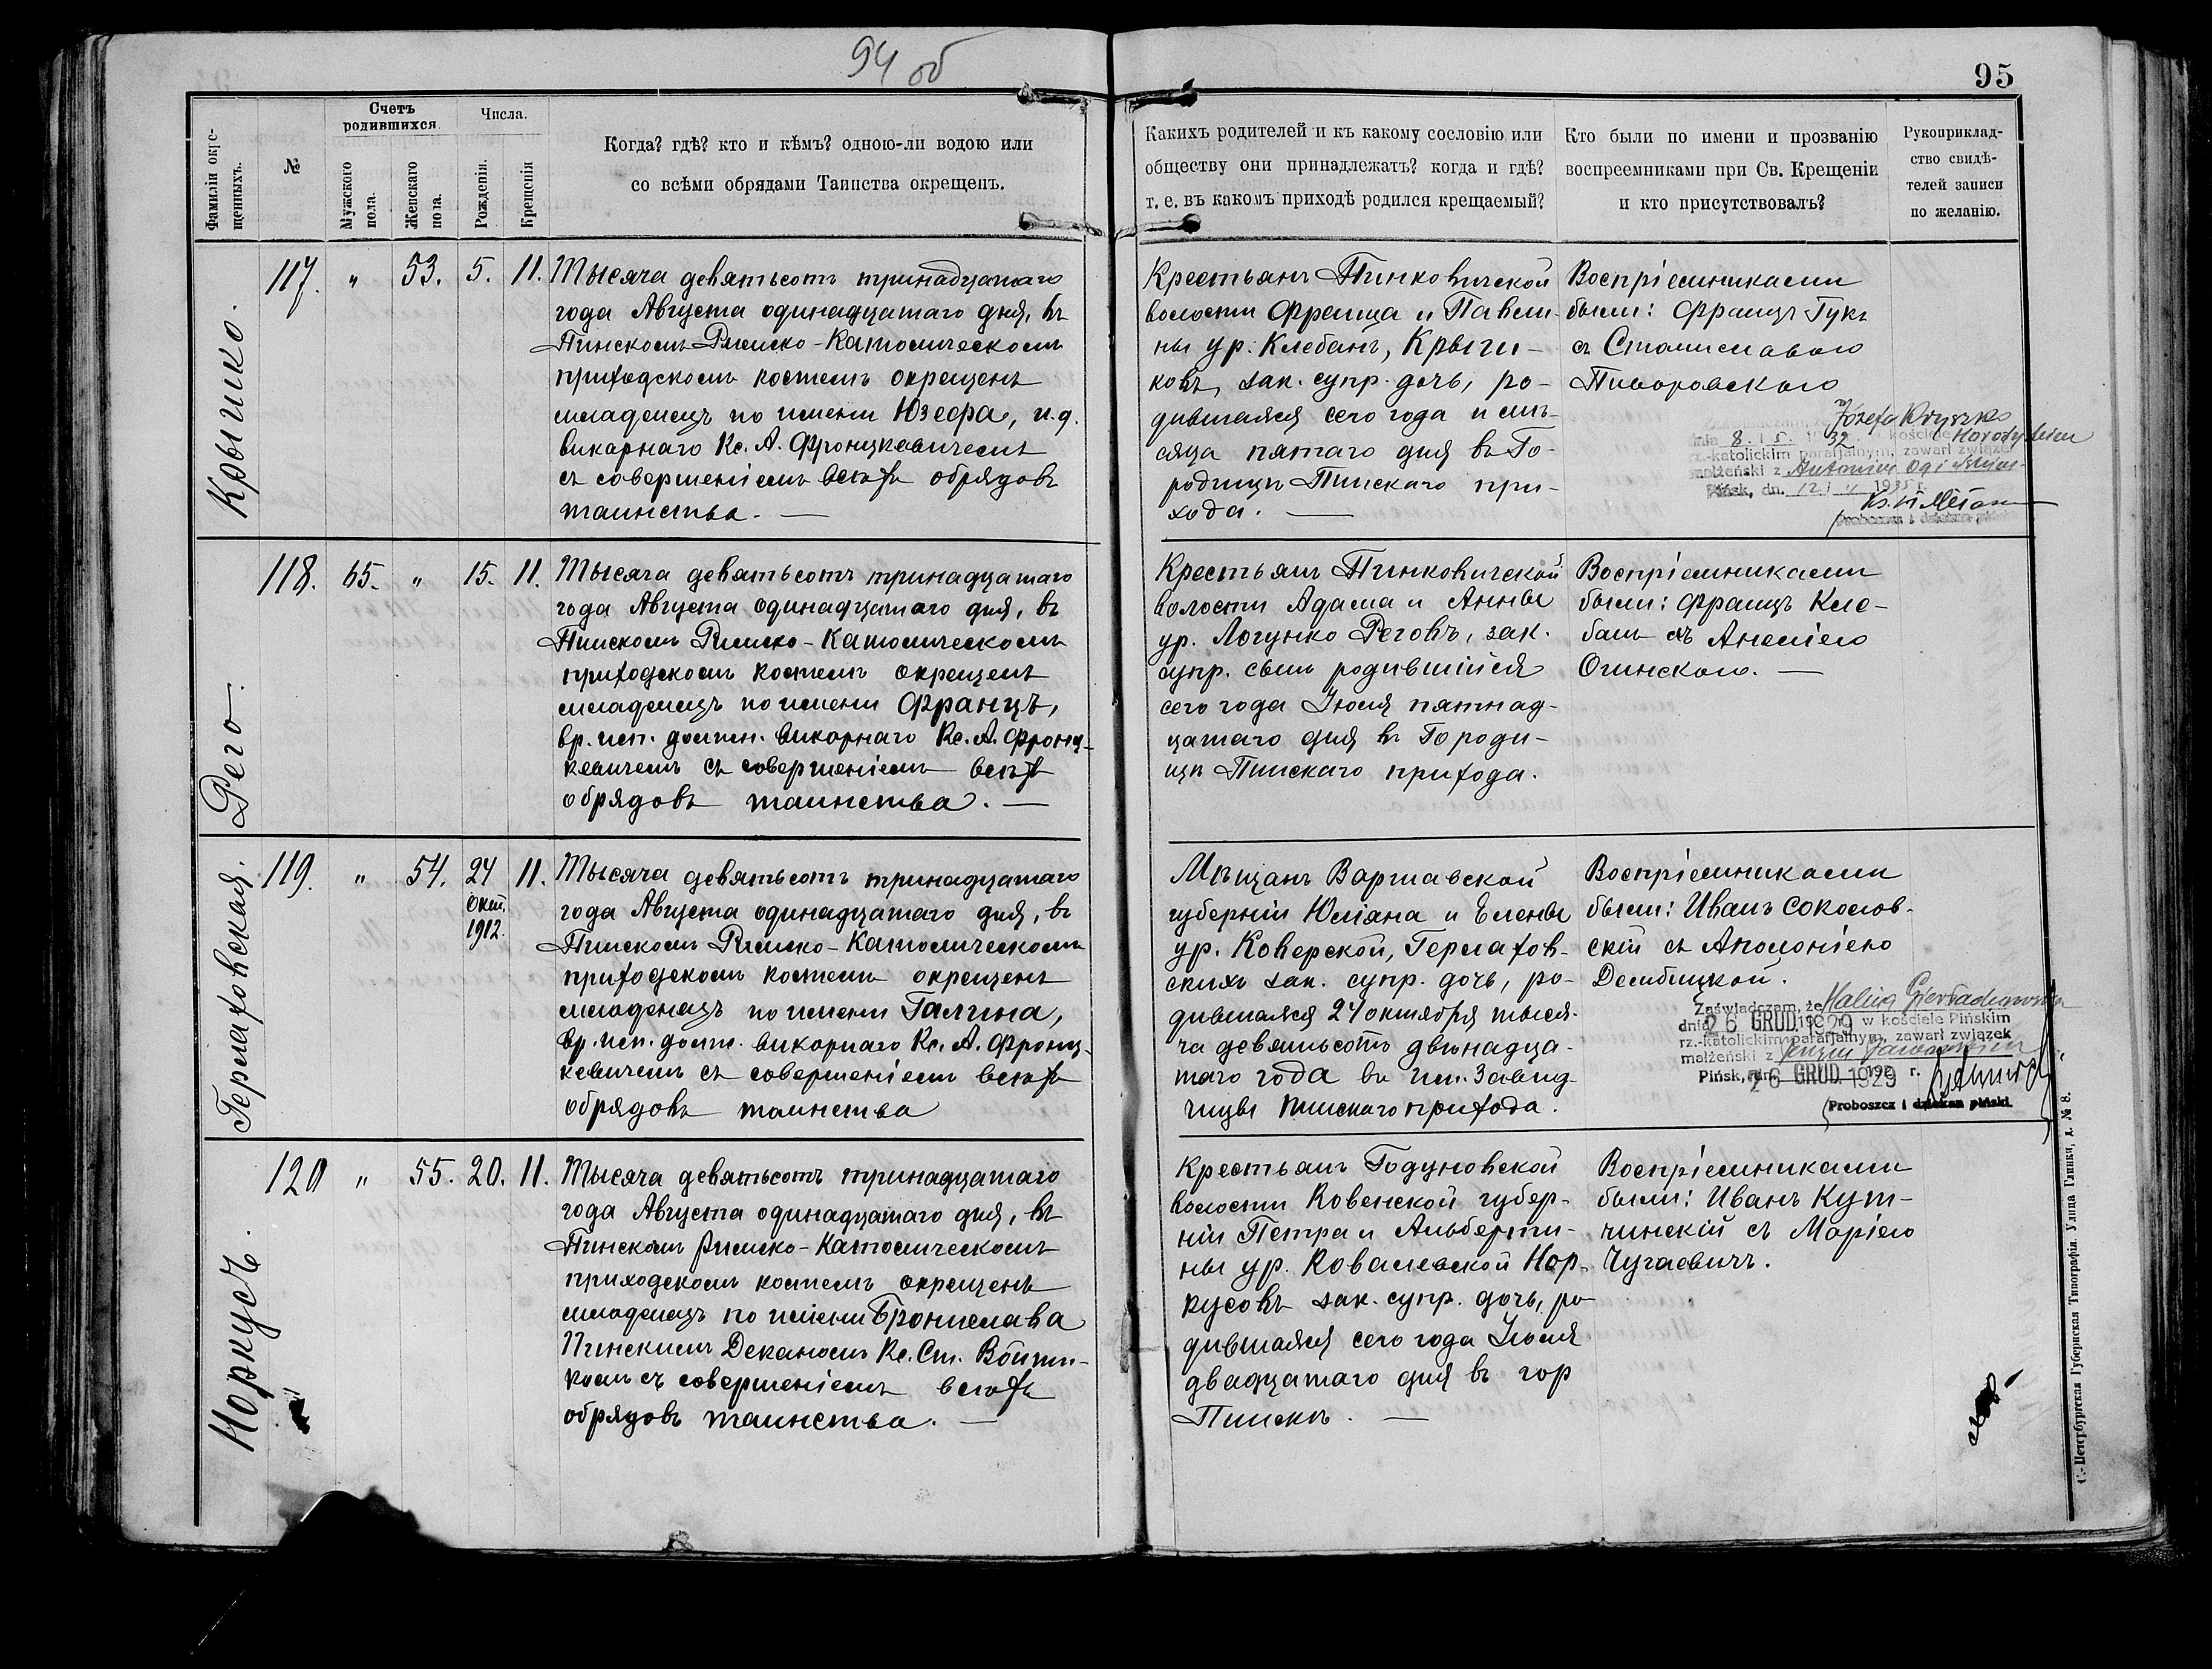 94 об
95
Фамиліи окре-
щенныхъ.
№
Счетъ
родившихся.
Мужского
пола.
Женскаго
пола.
Числа.
Рожденія.
Крещенія
Когда? гдѣ? кто и кѣмъ? одною-ли водою или
со всѣми обрядами Таинства окрещенъ.
Какихъ родителей и къ какому сословію или
обществу они принадлежатъ? когда и гдѣ?
т. е. въ какомъ приходѣ родился крещаемый?
Кто были по имени и прозванію
воспреемниками при Св. Крещеніи
и кто присутствовалъ?
Рукоприклад-
ство свидѣ-
телей записи
по желанію.
Крышко.
117. " 53. 5. 11.
Тысяча девятьсотъ тринадцатаго
года Августа одинадцатаго дня, въ
Пинскомъ Римско-Католическомъ
приходскомъ костелѣ окрещенъ
младенецъ по имени Юзефа, и.д.
викарнаго Кс. А. Фронцкевичемъ
съ совершеніемъ всѣхъ обрядовъ
таинства. —
Крестьянъ Пинковичской
волости Франца и Павли-
ны ур. Клебанъ, Крыш-
ковъ, зак. супр. дочь, ро-
дившаяся сего года и мѣ-
сяца пятаго дня въ Го-
родищѣ Пинскаго при-
хода. —
Воспріемниками
были: Францъ Гукъ
съ Станиславою
Józefa Kryszko
dnia 8 i 5. 32 kościele Horodyskim
rz.-katolickim parafjalnym, zawarł związek
małżeński z Antonim
Pińsk, dn. 12 i 4 1935 r.
Proboszcz i dziekan piński
Рего.
118. 65. " 15. 11.
Тысяча девятьсотъ тринадцатаго
года Августа одинадцатаго дня, въ
Пинскомъ Римско-Католическомъ
приходскомъ костелѣ окрещенъ
младенецъ по имени Францъ,
вр. исп. должн. викарнаго Кс. А. Фронц-
кевичемъ съ совершеніемъ всѣхъ
обрядовъ таинства. —
Крестьянъ Пинковичской
волости Адама и Анны
ур. Логунко Реговъ, зак.
супр. сынъ родившійся
сего года Іюля пятнад-
цатаго дня въ Городи-
щѣ Пинскаго прихода.
Воспріемниками
были: Францъ Кле-
банъ съ Анеліею
Огинскою. —
Герлаховская.
119. " 54. 24 11.
Окт.
1912.
Тысяча девятьсотъ тринадцатаго
года Августа одинадцатаго дня, въ
Пинскомъ Римско-Католическомъ
приходскомъ костелѣ окрещенъ
младенецъ по имени Галина,
вр. исп. долж. викарнаго Кс. А. Фронц-
кевичемъ съ совершеніемъ всѣхъ
обрядовъ таинства
Мѣщанъ Варшавской
губерніи Юліана и Елены
ур. Коверской, Герлахов-
скихъ зак. супр. дочь, ро-
дившаяся 24 октября тыся-
ча девятьсотъ двѣнадца-
таго года въ им. Завид-
чицы Пинскаго прихода.
Воспріемниками
были: Иванъ Соколов-
скій съ Аполоніею
Дембицкой.
Zaświadczam, że Halina Gierłachowska
dnia 26 GRUD. 1929 w kościele Pińskim
rz.-katolickim parafjalnym, zawarł związek
małżeński z
Pińsk, dn. 26 GRUD. 1929 r.
Proboszcz i dziekan piński.
Норкусъ.
120 " 55. 20. 11.
Тысяча девятьсотъ тринадцатаго
года Августа одинадцатаго дня, въ
Пинскомъ Римско-Католическомъ
приходскомъ костелѣ окрещенъ
младенецъ по имени Бронислава
Пинскимъ Деканомъ Кс. Ст. Войти-
комъ съ совершеніемъ всѣхъ
обрядовъ таинства. —
Крестьянъ Годуновской
волости Ковенской губер-
ніи Петра и Альберти-
ны ур. Ковалевской Нор-
кусовъ зак. супр. дочь, ро
дившаяся сего года Іюля
двадцатаго дня въ гор
Пинскѣ. —
Воспріемниками
были: Иванъ Кут-
чинскій съ Маріею
Чугаевичъ.
С.-Петербургская Губернская Типографія. Улица Глинки, д. № 8.